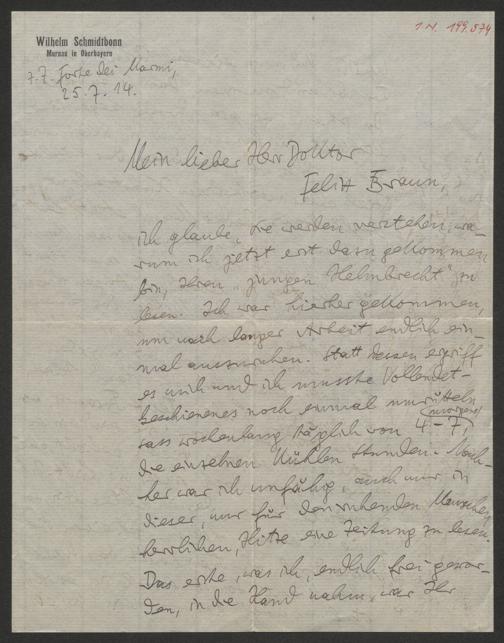 I.N. 199.574
Wilhelm Schmidtbonn
Murnau in Oberbayern
z. Z. Forte dei Marmi,
25. 7. 14.
Mein lieber Herr Doktor
Felix Braun,
ich glaube, Sie werden verstehen, wa-
rum ich jetzt erst dazu gekommen
bin, Ihren „jungen Helmbrecht" zu
lesen. Ich war hierher gekommen,
um nach langer Arbeit endlich ein-
mal auszuruhen. Statt dessen ergriff
es mich und ich musste Vollendet-
geschienenes noch einmal umrütteln,
sass wochenlang täglich von 4–7, (morgens)
die einzelnen kühlen Stunden. Nach-
her war ich unfähig, auch nur in
dieser, nur für den ruhenden Menschen
herrlichen, Hitze eine Zeitung zu lesen.
Das erste, was ich, endlich frei gewor-
den, in die Hand nahm, war Ihr